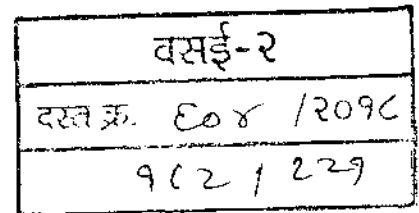 वसई-२
दस्त क्र. ६०४ /२०१८
१८२ / २२१